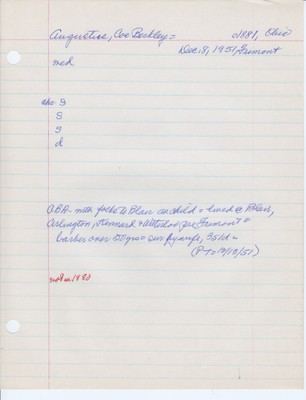 Augustine, Coe Beckley = c1881, Ohio
Dec. 8, 1951, Fremont
mcd
chr S
S
S
d
OBA - with folks to Blair as child & lived @ Blair,
Arlington, Kennard & Waterloo, pre Fremont =
barber over 50 yrs = surv by wife, 3s1d =
(PT 12/10/51)
not in 1880